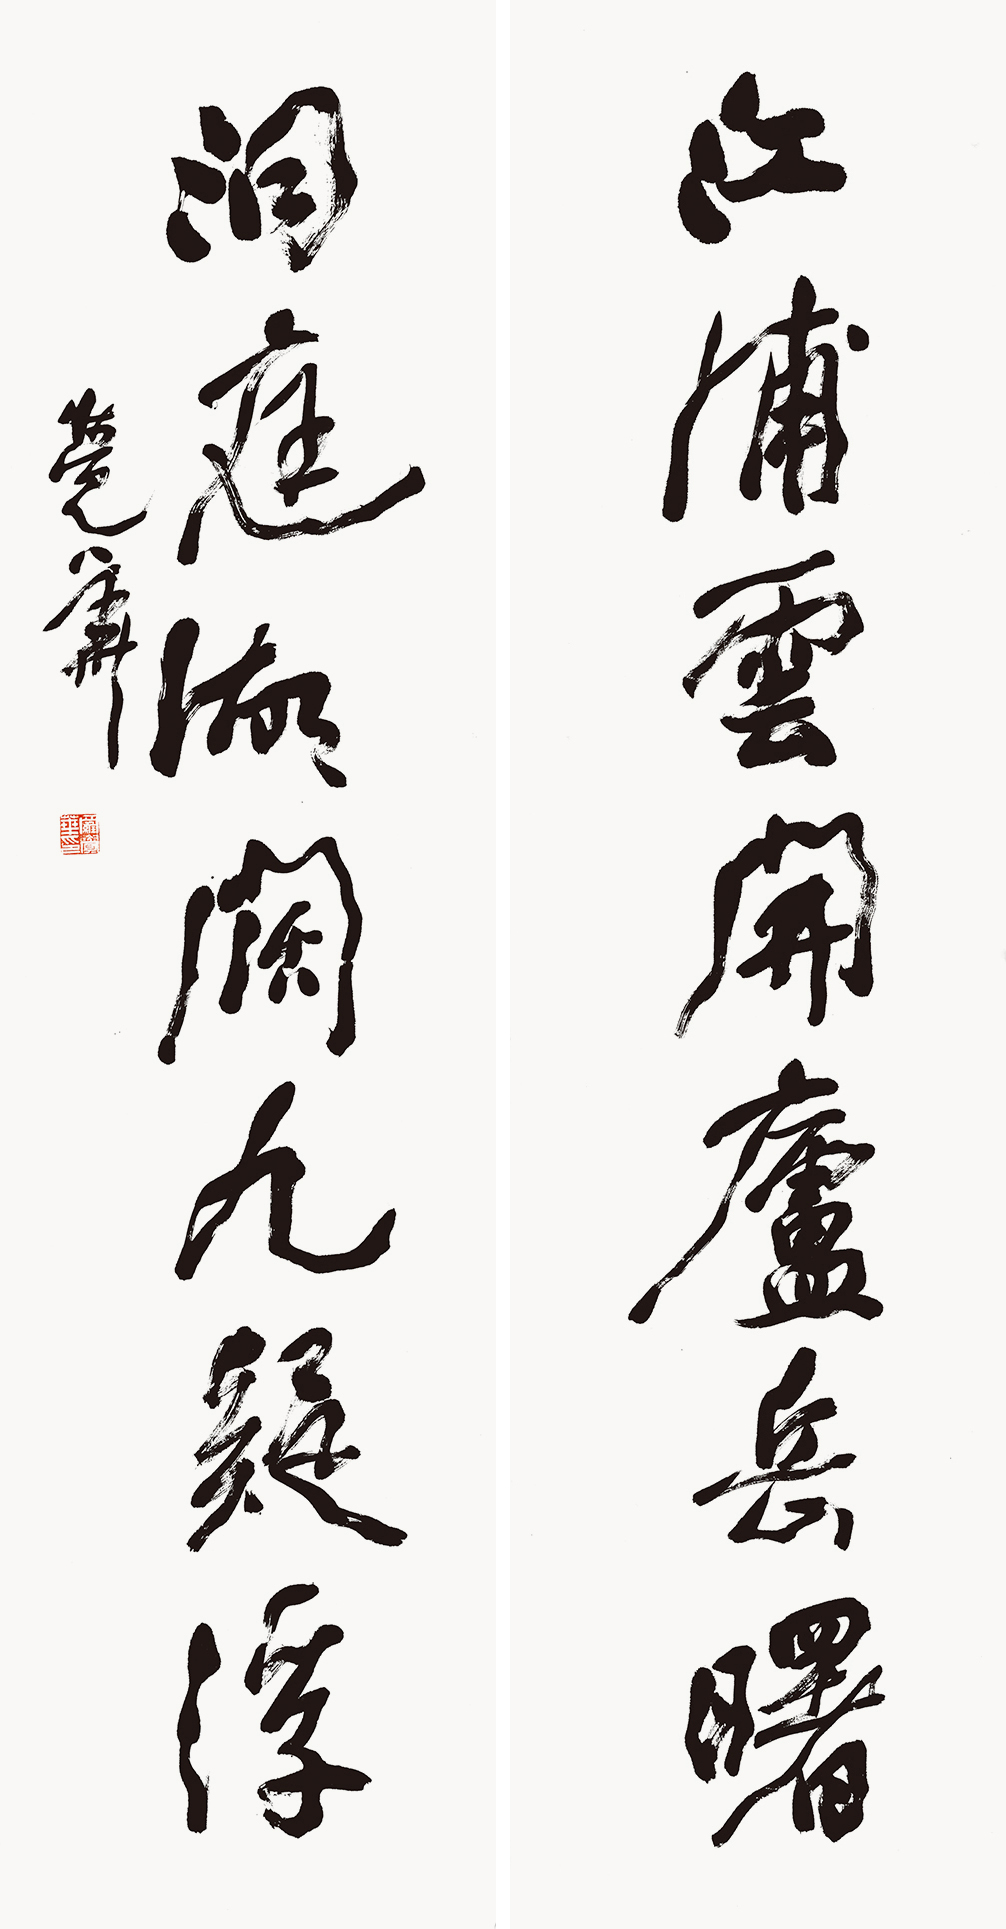 江浦雲開廬岳曙
洞庭湖闊九疑浮
寬華